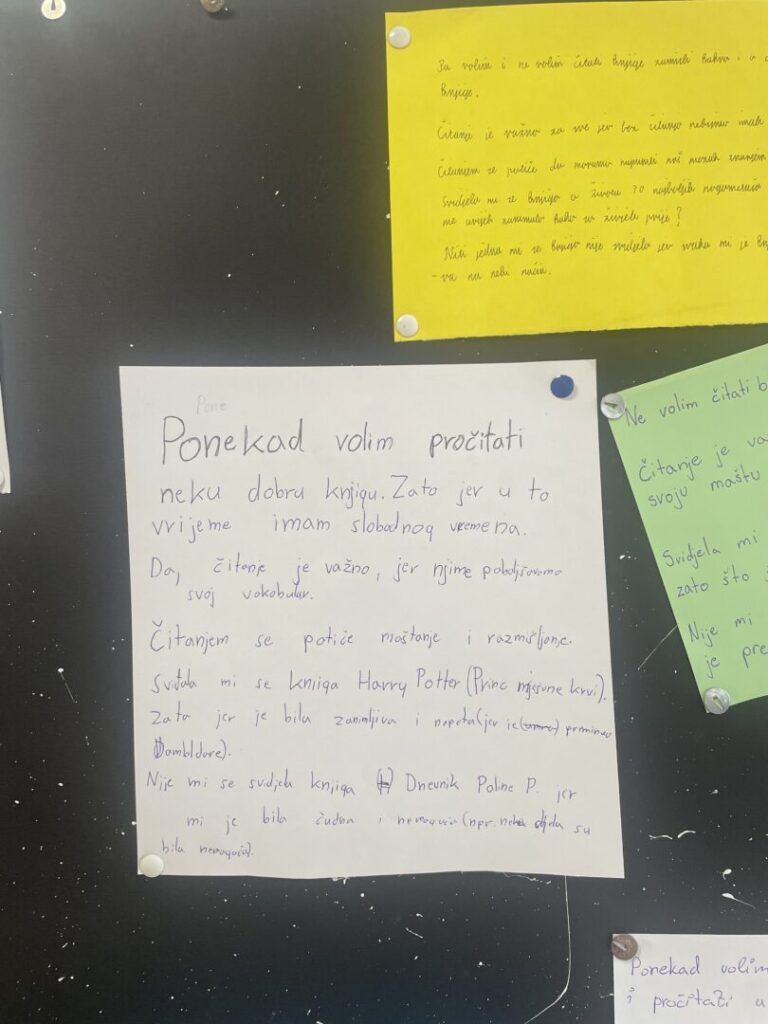 Pa volim i ne volim čitati knjige
knjige.
Čitanje je važno za me jer bez čitanja nebismo imali
Čitanjem se potiče da moramo napuniti naš mozak znanjem
Svidjela mi se knjiga o životu 30 najboljih nogometaša
me uvijek zanimalo kako su živjeli prije?
Niti jedna mi se knjiga nije svidjela jer svaka mi je
na neki način.
Pone
Ponekad volim pročitati
neku dobru knjigu. Zato jer u to
vrijeme imam slobodnog vremena.
Da, čitanje je važno, jer njime poboljšavamo
svoj vokabular.
Čitanjem se potiče maštanje i razmišljanje.
Sviđala mi se knjiga Harry Potter (Princ mješane krvi).
Zato jer je bila zanimljiva i napeta (jer je preminuo
Dambldore).
Nije mi se svidjela knjiga Dnevnik Pauline P. jer
mi je bila čudna i nemoguća (npr. neka djela su
bila nemoguća).
Ne volim čitati
Čitanje je
svoju maštu
Svidjela mi
zato što
Nije mi
je
Ponekad volim
i pročitati